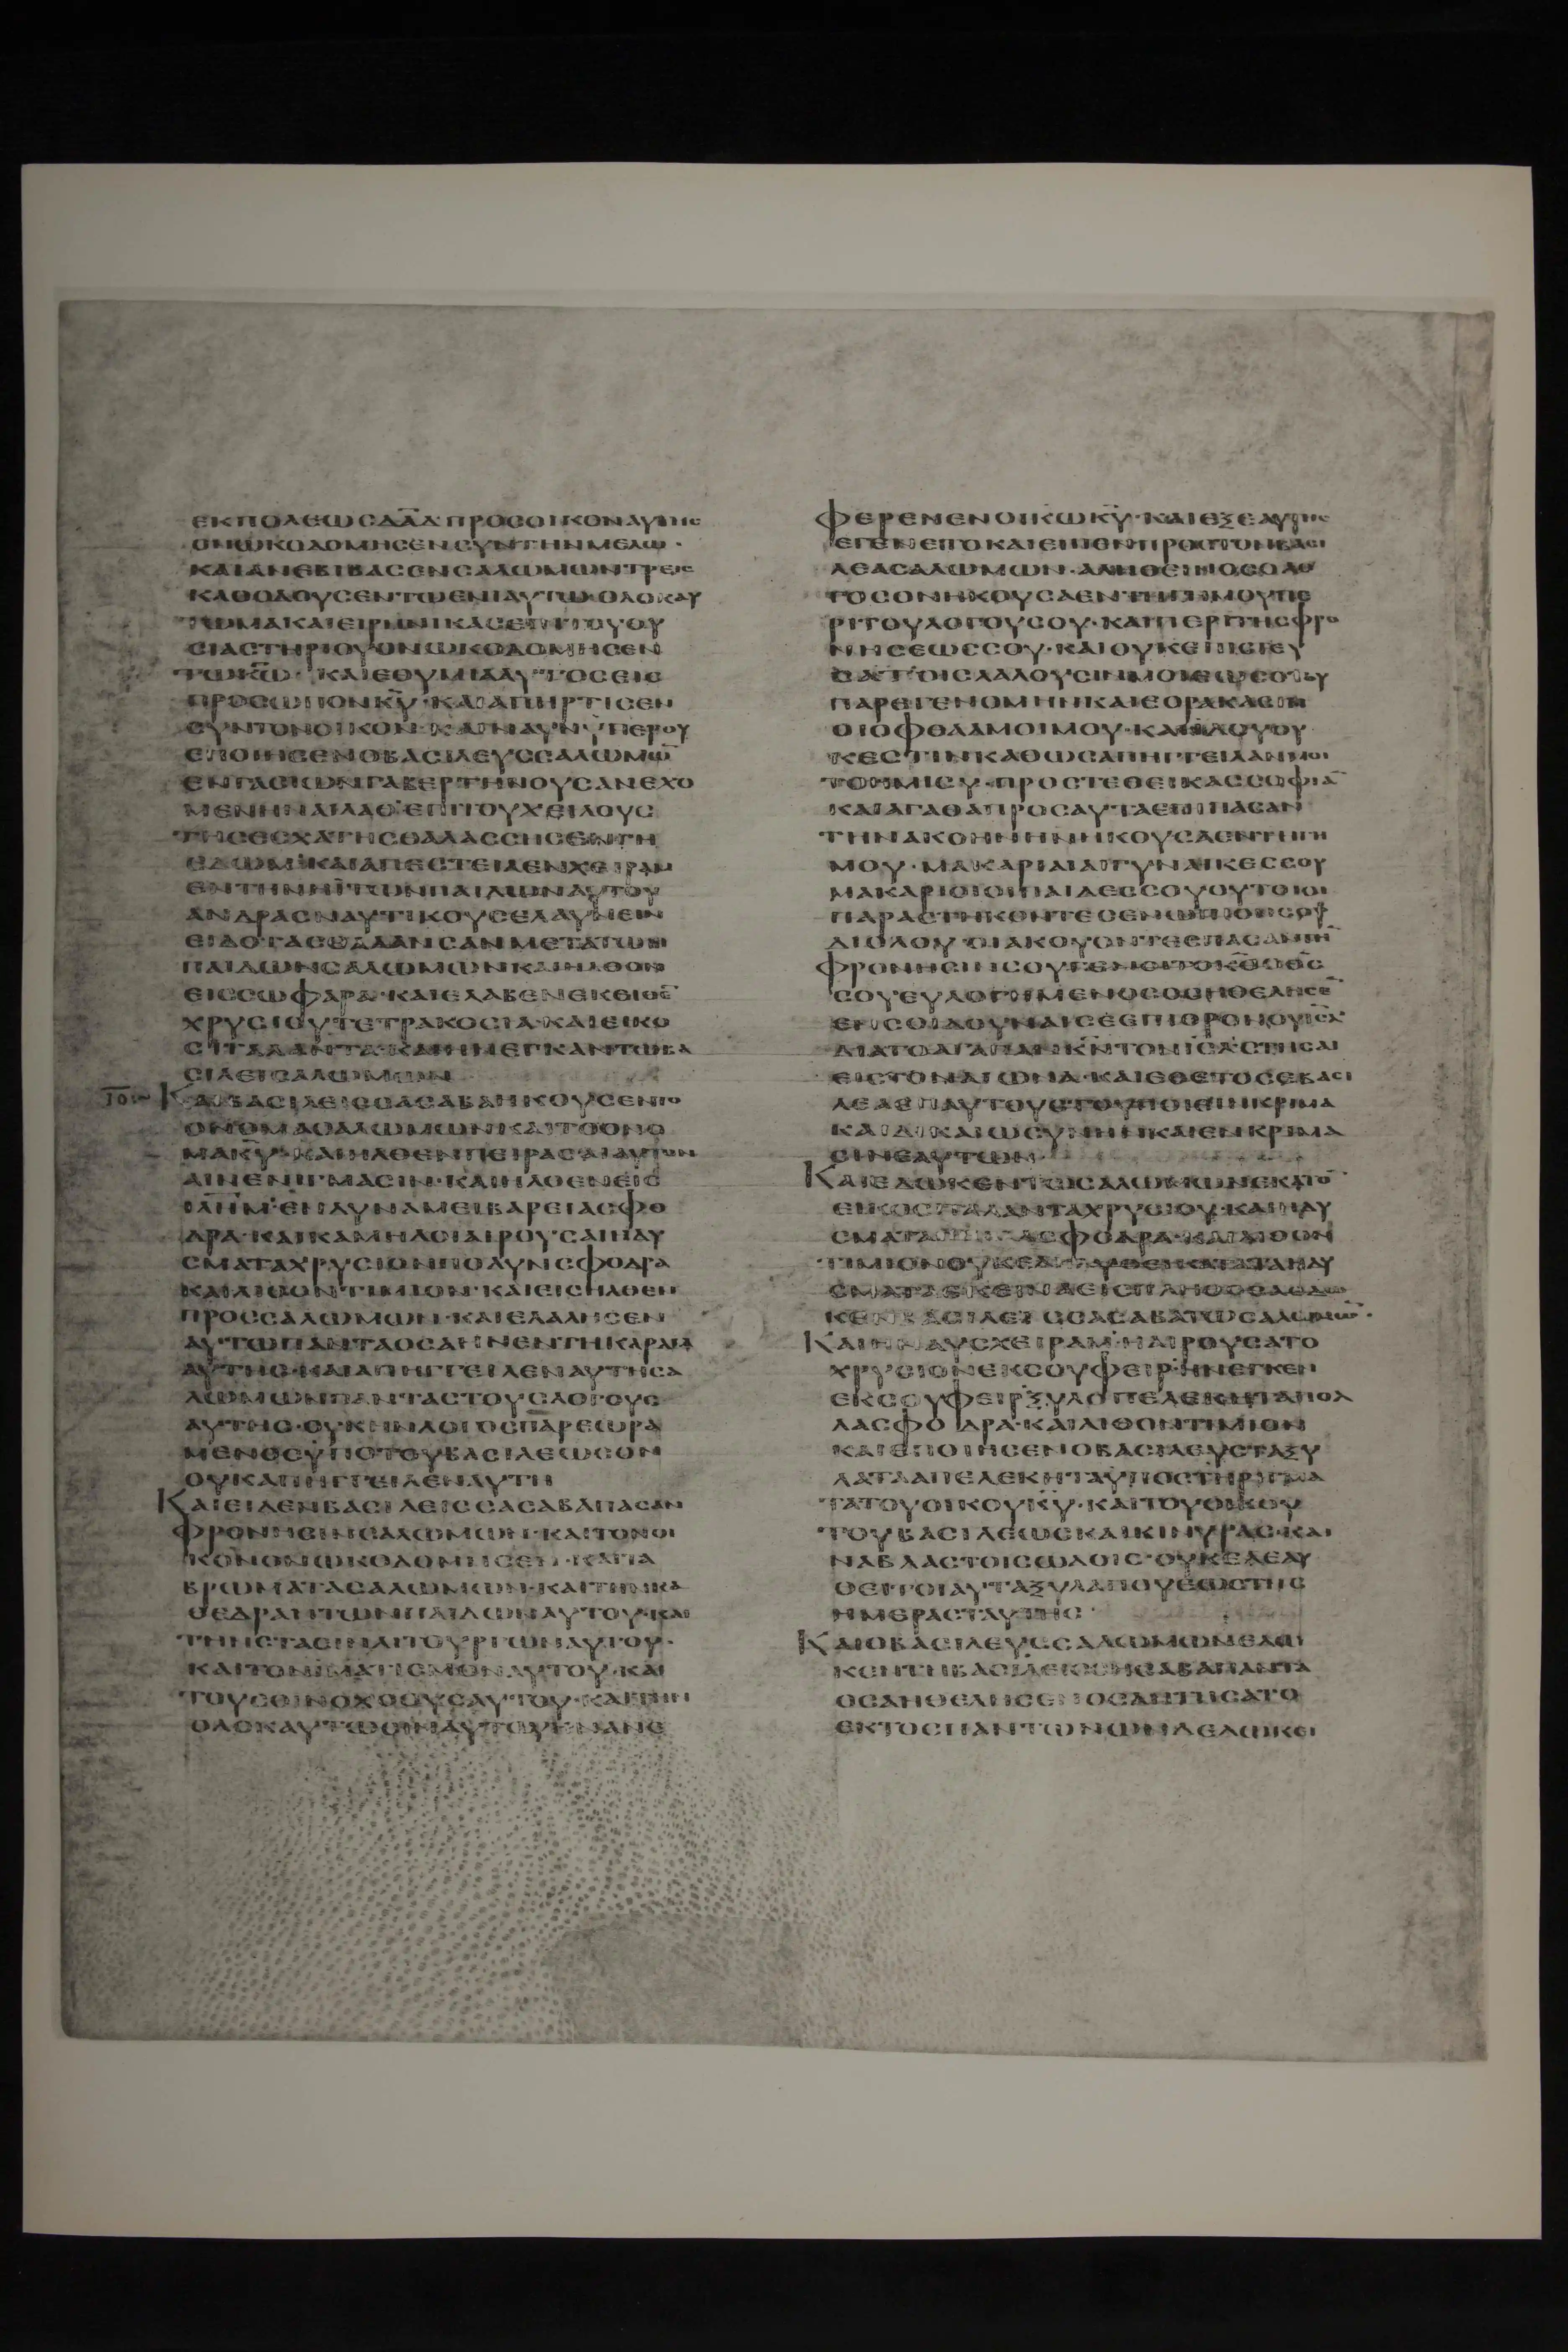 ΕΚΠΟΛΕΩΣΔΑΔ·ΠΡΟΣΟΙΚΟΝΑΥΤΗΣ
ΟΝΩΚΟΔΟΜΗΣΕΝ
ΚΑΙΑΝΕΒΙΒΑΣΕΝΣΑΛΩΜΩΝΤΡΕΙΣ
ΚΑΘΟΔΟΥΣΕΝΤΩΕΝΙΑΥΤΩΟΛΟΚΑΥ
ΤΩΜΑΚΑΙΕΙΡΗΝΙΚΑΣΕΠΙΤΟΥΘΥ
ΣΙΑΣΤΗΡΙΟΥΟΝΩΚΟΔΟΜΗΣΕΝ
ΤΩΚΩ· ΚΑΙΕΘΥΜΙΑΑΥΤΟΣΕΙΣ
ΠΡΟΣΩΠΟΝΚΥ·ΚΑΙΑΠΗΡΤΙΣΕΝ
ΣΥΝΤΟΝΟΙΚΟΝ·ΚΑΙΝΑΥΝΥΠΕΡΟΥ
ΕΠΟΙΗΣΕΝΟΒΑΣΙΛΕΥΣΣΑΛΩΜΩ
ΕΝΓΑΣΙΩΝΓΑΒΕΡΤΗΝΟΥΣΑΝΕΧΟ
ΜΕΝΗΝΑΙΛΑΘ·ΕΠΙΤΟΥΧΕΙΛΟΥΣ
ΤΗΣΕΣΧΑΤΗΣΘΑΛΑΣΣΗΣΕΝΓΗ
ΕΔΩΜ·ΚΑΙΑΠΕΣΤΕΙΛΕΝΧΕΙΡΑΜ
ΕΝΤΗΝΗΙΤΩΝΠΑΙΔΩΝΑΥΤΟΥ
ΑΝΔΡΑΣΝΑΥΤΙΚΟΥΣΕΛΑΥΝΕΙΝ
ΕΙΔΟΤΑΣΘΑΛΑΝΣΑΝΜΕΤΑΤΩΝ
ΠΑΙΔΩΝΣΑΛΩΜΩΝΚΑΙΗΛΘΟΝ
ΕΙΣΣΩΦΑΡΑ·ΚΑΙΕΛΑΒΕΝΕΚΕΙΘΕ
ΧΡΥΣΙΟΥΤΕΤΡΑΚΟΣΙΑ·ΚΑΙΕΙΚΟ
ΣΙΤΑΛΑΝΤΑ·ΚΑΙΗΝΕΓΚΑΝΤΩΒΑ
ΣΙΛΕΙΣΑΛΩΜΩΝ
ΚΑΙΒΑΣΙΛΕΙΣΣΑΣΑΒΑΗΚΟΥΣΕΝΤΟ
ΟΝΟΜΑΣΑΛΩΜΩΝΚΑΙΤΟΟΝΟ
ΜΑΚΥ·ΚΑΙΗΛΘΕΝΠΕΙΡΑΣΑΙΑΥΤΟΝ
ΑΙΝΕΝΙΓΜΑΣΙΝ·ΚΑΙΗΛΘΕΝΕΙΣ
ΙΛΗΜ·ΕΝΔΥΝΑΜΕΙΒΑΡΕΙΑΣΦΟ
ΔΡΑ·ΚΑΙΚΑΜΗΛΟΙΑΙΡΟΥΣΑΙΗΔΥ
ΣΜΑΤΑΧΡΥΣΙΟΝΠΟΛΥΝΣΦΟΔΡΑ
ΚΑΙΛΙΘΟΝΤΙΜΙΟΝ·ΚΑΙΕΙΣΗΛΘΕΝ
ΠΡΟΣΣΑΛΩΜΩΝ·ΚΑΙΕΛΑΛΗΣΕΝ
ΑΥΤΩΠΑΝΤΑΟΣΑΗΝΕΝΤΗΚΑΡΔΙΑ
ΑΥΤΗΣ·ΚΑΙΑΠΗΓΓΕΙΛΕΝΑΥΤΗΣΑ
ΛΩΜΩΝΠΑΝΤΑΣΤΟΥΣΛΟΓΟΥΣ
ΑΥΤΗΣ·ΟΥΚΗΝΛΟΓΟΣΠΑΡΕΩΡΑ
ΜΕΝΟΣΥΠΟΤΟΥΒΑΣΙΛΕΩΣΟΝ
ΟΥΚΑΠΗΓΓΕΙΛΕΝΑΥΤΗ
ΚΑΙΕΙΔΕΝΒΑΣΙΛΕΙΣΣΑΣΑΒΑΠΑΣΑΝ
ΦΡΟΝΗΣΙΝΣΑΛΩΜΩΝ·ΚΑΙΤΟΝΟΙ
ΚΟΝΟΝΩΚΟΔΟΜΗΣΕΝ·ΚΑΙΤΑ
ΒΡΩΜΑΤΑΣΑΛΩΜΩΝ·ΚΑΙΤΗΝΚΑ
ΘΕΔΡΑΝΤΩΝΠΑΙΔΩΝΑΥΤΟΥ·ΚΑΙ
ΤΗΝΣΤΑΣΙΝΛΙΤΟΥΡΓΩΝΑΥΤΟΥ·
ΚΑΙΤΟΝΙΜΑΤΙΣΜΟΝΑΥΤΟΥ·ΚΑΙ
ΤΟΥΣΟΙΝΟΧΟΟΥΣΑΥΤΟΥ·ΚΑΙΤΗΝ
ΟΛΟΚΑΥΤΩΣΙΝΑΥΤΟΥΗΝΑΝΕ
ΦΕΡΕΝΕΝΟΙΚΩΚΥ·ΚΑΙΕΞΕΑΥΤΗΣ
ΕΓΕΝΕΤΟΚΑΙΕΙΠΕΝΠΡΟΣΤΟΝΒΑΣΙ
ΛΕΑΣΑΛΩΜΩΝ·ΑΛΗΘΕΙΝΟΣΟΛΟ
ΓΟΣΟΝΗΚΟΥΣΑΕΝΤΗΓΗΜΟΥΠΕ
ΡΙΤΟΥΛΟΓΟΥΣΟΥ·ΚΑΙΠΕΡΙΤΗΣΦΡΟ
ΝΗΣΕΩΣΣΟΥ·ΚΑΙΟΥΚΕΠΙΣΤΕΥ
ΣΑΤΟΙΣΛΑΛΟΥΣΙΝΜΟΙΕΩΣΟΤΟΥ
ΠΑΡΕΓΕΝΟΜΗΝΚΑΙΕΟΡΑΚΑΣΙΝ
ΟΙΟΦΘΑΛΜΟΙΜΟΥ·ΚΑΙΙΔΟΥΟΥ
ΚΕΣΤΙΝΚΑΘΩΣΑΠΗΓΓΕΙΛΑΝΜΟΙ
ΤΟΗΜΙΣΥ·ΠΡΟΣΤΕΘΕΙΚΑΣΣΟΦΙΑ
ΚΑΙΑΓΑΘΑΠΡΟΣΑΥΤΑΕΠΙΠΑΣΑΝ
ΤΗΝΑΚΟΗΝΗΝΗΚΟΥΣΑΕΝΤΗΓΗ
ΜΟΥ·ΜΑΚΑΡΙΑΙΑΙΓΥΝΑΙΚΕΣΣΟΥ
ΜΑΚΑΡΙΟΙΟΙΠΑΙΔΕΣΣΟΥΟΥΤΟΙΟΙ
ΠΑΡΑΣΤΗΚΟΝΤΕΣΕΝΩΠΙΟΝΣΟΥ
ΔΙΟΛΟΥ·ΟΙΑΚΟΥΟΝΤΕΣΠΑΣΑΝΤΗ
ΦΡΟΝΗΣΙΝΣΟΥΓΕΝΟΙΤΟΚΣΟΘΣ
ΣΟΥΕΥΛΟΓΗΜΕΝΟΣΟΣΗΘΕΛΗΣΕ
ΕΝΣΟΙΔΟΥΝΑΙΣΕΕΠΙΘΡΟΝΟΥΙΣΛ
ΔΙΑΤΟΑΓΑΠΑΝΚΝΤΟΝΙΣΛΣΤΗΣΑΙ
ΕΙΣΤΟΝΑΙΩΝΑ·ΚΑΙΕΘΕΤΟΣΕΒΑΣΙ
ΛΕΑΕΠΑΥΤΟΥΣΤΟΥΠΟΙΕΙΝΚΡΙΜΑ
ΚΑΙΔΙΚΑΙΩΣΥΝΗΝΚΑΙΕΝΚΡΙΜΑ
ΣΙΝΕΑΥΤΩΝ·
ΚΑΙΕΔΩΚΕΝΤΩΣΑΛΩΜΩΝΕΚΑΤΟ
ΕΙΚΟΣΙΤΑΛΑΝΤΑΧΡΥΣΙΟΥ·ΚΑΙΗΔΥ
ΣΜΑΤΑΠΟΛΛΑΣΦΟΔΡΑ·ΚΑΙΛΙΘΟΝ
ΤΙΜΙΟΝΟΥΚΕΛΗΛΥΘΕΙΚΑΤΑΤΑΗΔΥ
ΣΜΑΤΑΕΚΕΙΝΑΕΙΣΠΛΗΘΟΣΑΕΔΩ
ΚΕΝΒΑΣΙΛΕΙΣΣΑΣΑΒΑΤΩΣΑΛΩΜΩ·
ΚΑΙΗΝΑΥΣΧΕΙΡΑΜ·ΗΑΙΡΟΥΣΑΤΟ
ΧΡΥΣΙΟΝΕΚΣΟΥΦΕΙΡ·ΗΝΕΓΚΕΝ
ΕΚΣΟΥΦΕΙΡΞΥΛΑΠΕΛΕΚΗΤΑΠΟΛ
ΛΑΣΦΟΔΡΑ·ΚΑΙΛΙΘΟΝΤΙΜΙΟΝ
ΚΑΙΕΠΟΙΗΣΕΝΟΒΑΣΙΛΕΥΣΤΑΞΥ
ΛΑΤΑΑΠΕΛΕΚΗΤΑΥΠΟΣΤΗΡΙΓΜΑ
ΤΑΤΟΥΟΙΚΟΥΚΥ·ΚΑΙΤΟΥΟΙΚΟΥ
ΤΟΥΒΑΣΙΛΕΩΣΚΑΙΚΙΝΥΡΑΣ·ΚΑΙ
ΝΑΒΛΑΣΤΟΙΣΩΔΟΙΣ·ΟΥΚΕΛΕΛΥ
ΘΕΙΤΟΙΑΥΤΑΞΥΛΑΠΟΥΕΩΣΤΗΣ
ΗΜΕΡΑΣΤΑΥΤΗΣ·
ΚΑΙΟΒΑΣΙΛΕΥΣΣΑΛΩΜΩΝΕΔΩ
ΚΕΝΤΗΒΑΣΙΛΕΙΣΣΗΣΑΒΑΠΑΝΤΑ
ΟΣΑΗΘΕΛΗΣΕΝΟΣΑΗΤΗΣΑΤΟ
ΕΚΤΟΣΠΑΝΤΩΝΩΝΔΕΔΩΚΕΙ